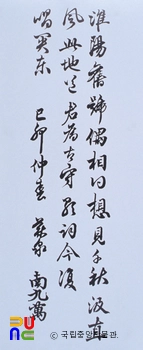 淮陽舊號偶相同想見千秋汲直
風此地君爲守歌詞今復
唱関東 己卯仲春 藥泉 南九萬
ⓒ 국립중앙박물관.